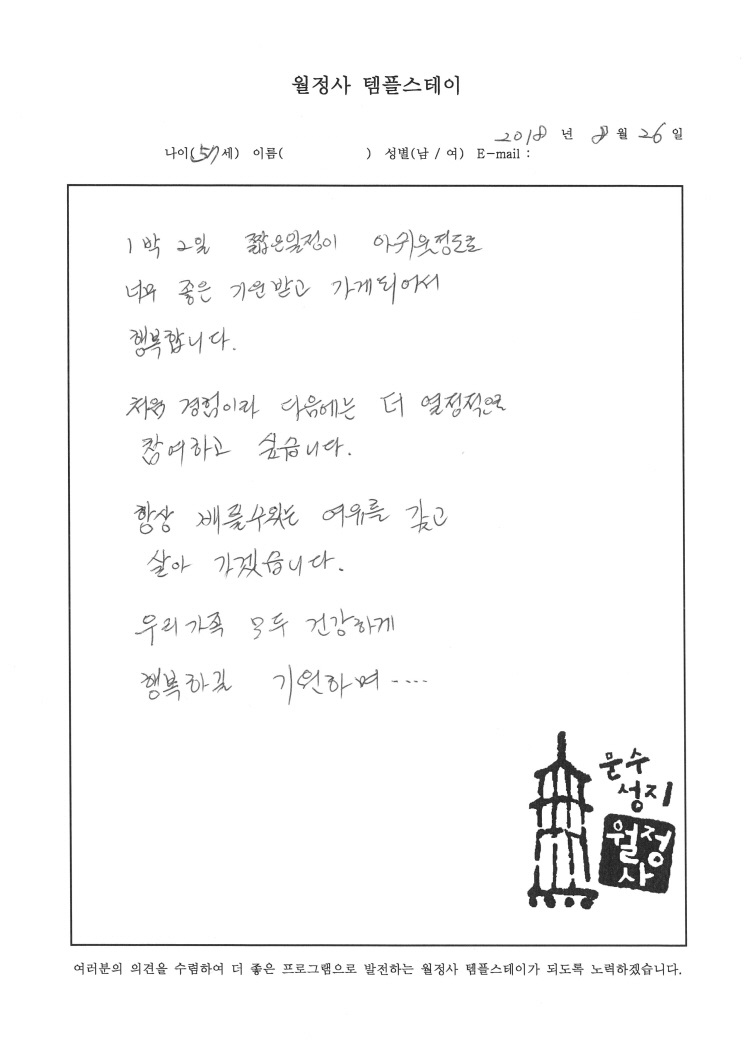 월정사 템플스테이
2018 년 8 월 26 일
나이(57세) 이름( ) 성별(남 / 여) E-mail :
1박 2일 짧은일정이 아쉬웃정도로
너무 좋은 기운받고 가게되어서
행복합니다.
처음 경험이라 다음에는 더 열정적으로
참여하고 싶습니다.
항상 베풀수있는 여유를 갖고
살아 가겠습니다.
우리가족 모두 건강하게
행복하길 기원하며 ....
문수
성지
월정
사
여러분의 의견을 수렴하여 더 좋은 프로그램으로 발전하는 월정사 템플스테이가 되도록 노력하겠습니다.